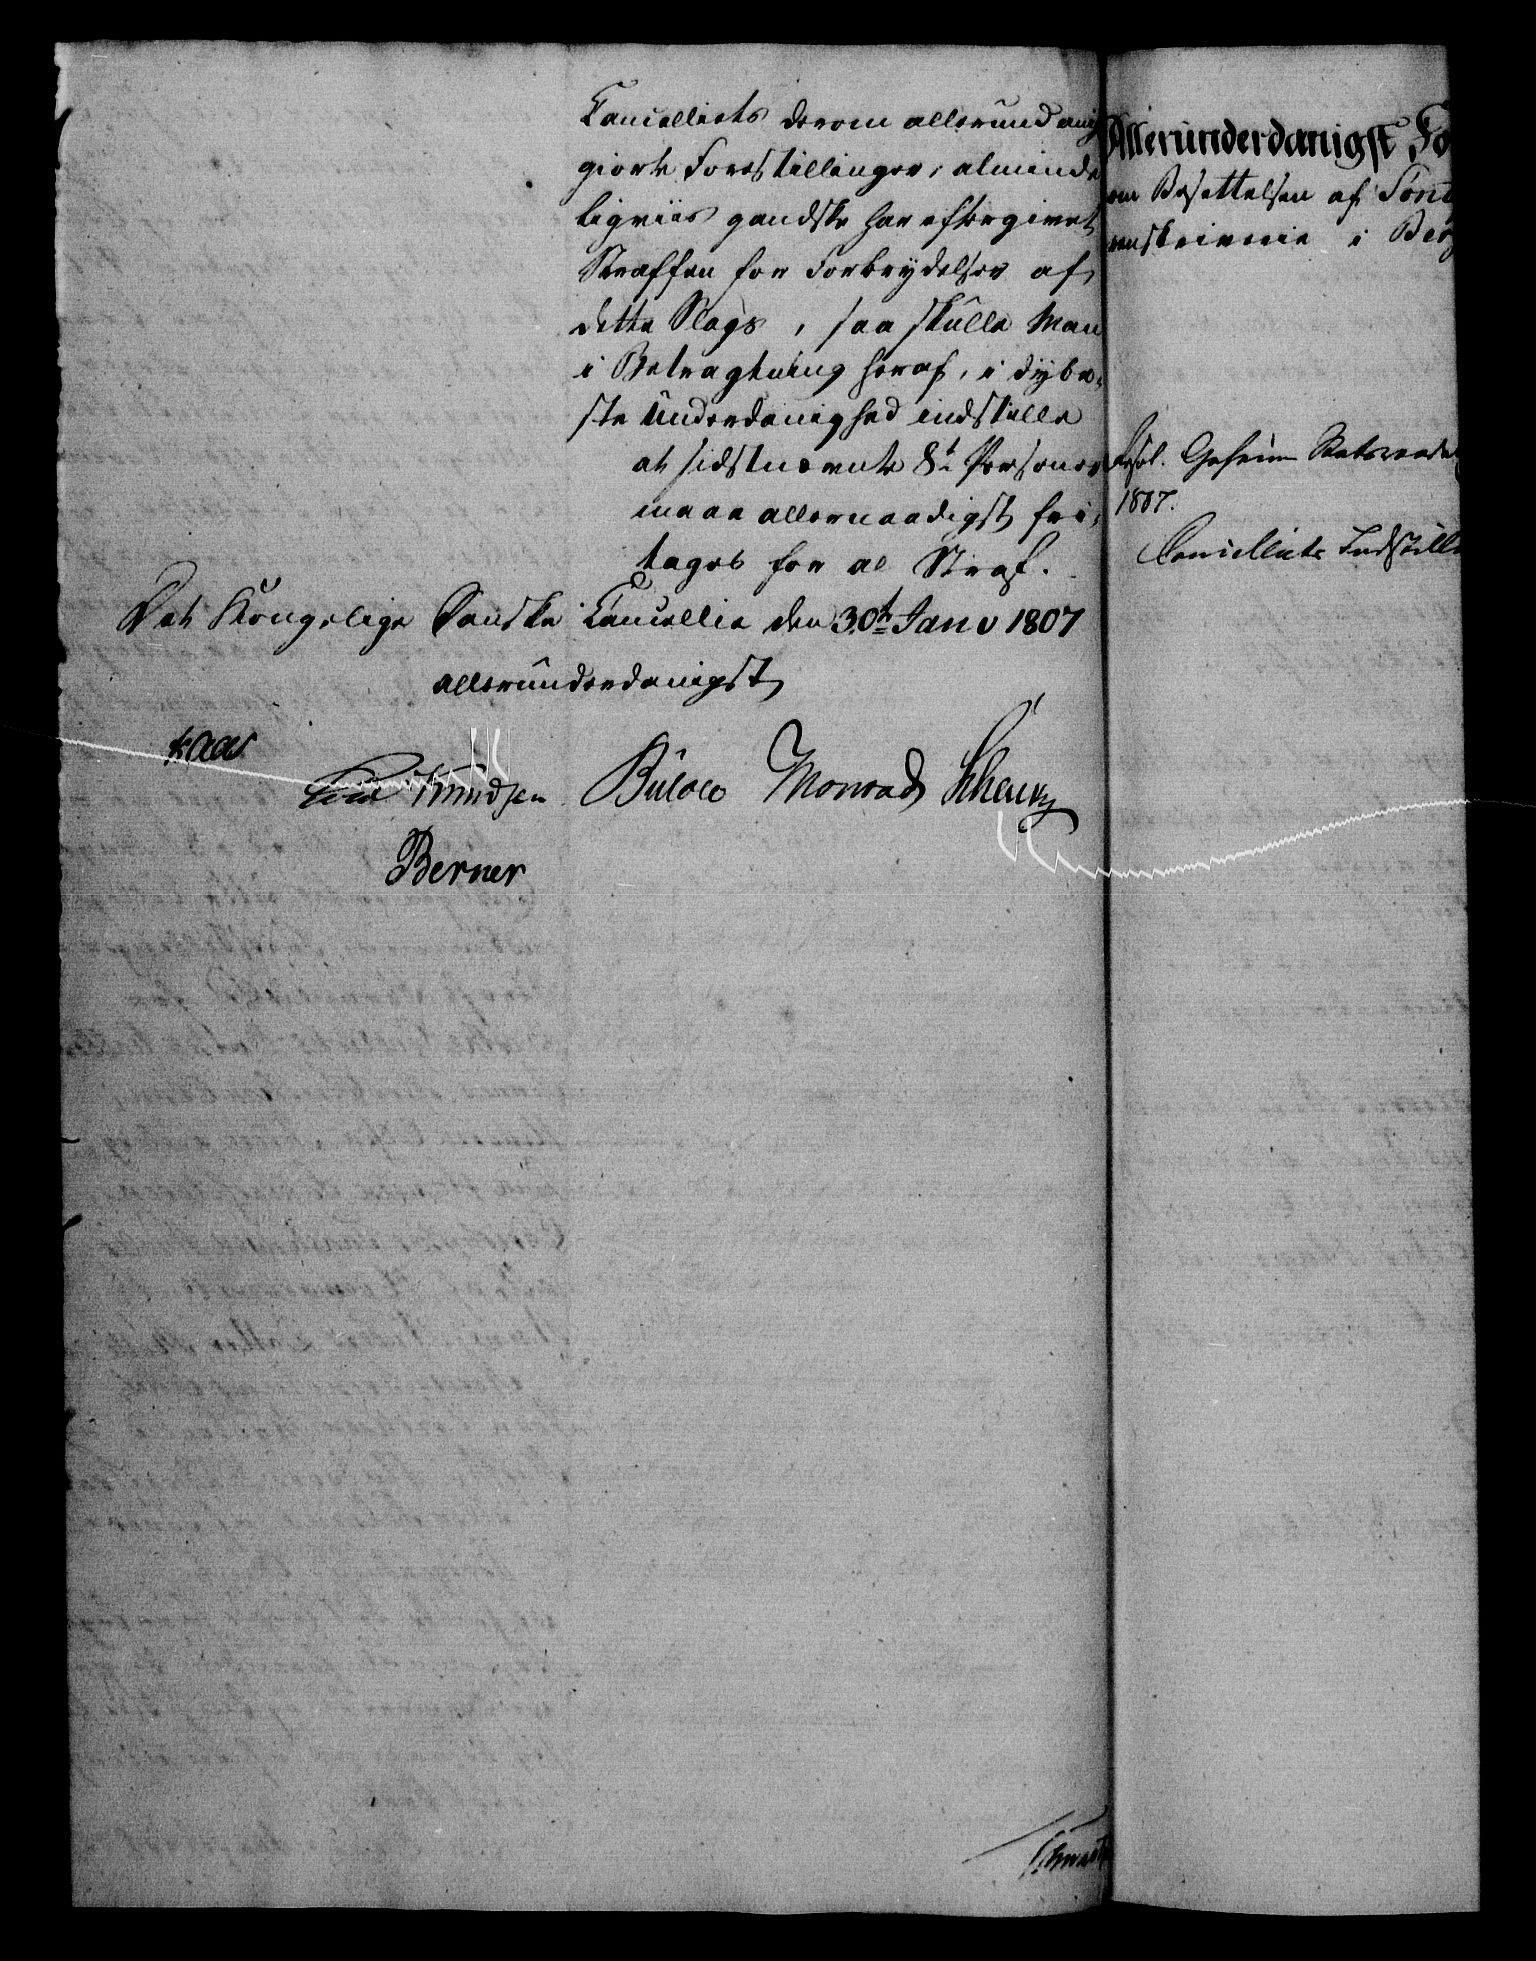 Cancelliets derom allerundanig
giorte Forestillinger, alminde
ligviis gandske har eftergivet
Straffen for Forbrydelser af
dette Slags, saa skulle Man
i Betragtning heraf, i dybe-
ste Underdanighed indstille
at sidstnævnte 8te Personer
maae allernaadigst fri-
tages for al Straf.
Det Kongelige Danske Cancellie den 30te Janv 1807
allerunderdanigst
Kaas
Knudsen Bülow Monrad
Berner
Allerunderdanigst Fo
om Besættelsen af Sønd
renskriverie i Berg
Resol. Geheime Statsraadet
1807.
Cancelliets Indstill